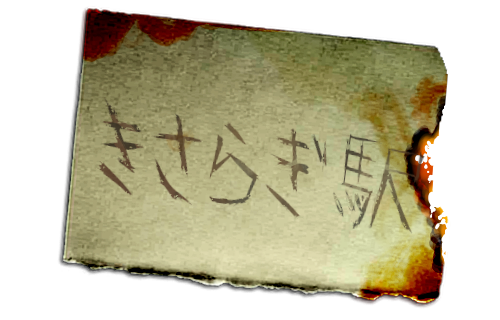 きさらぎ駅